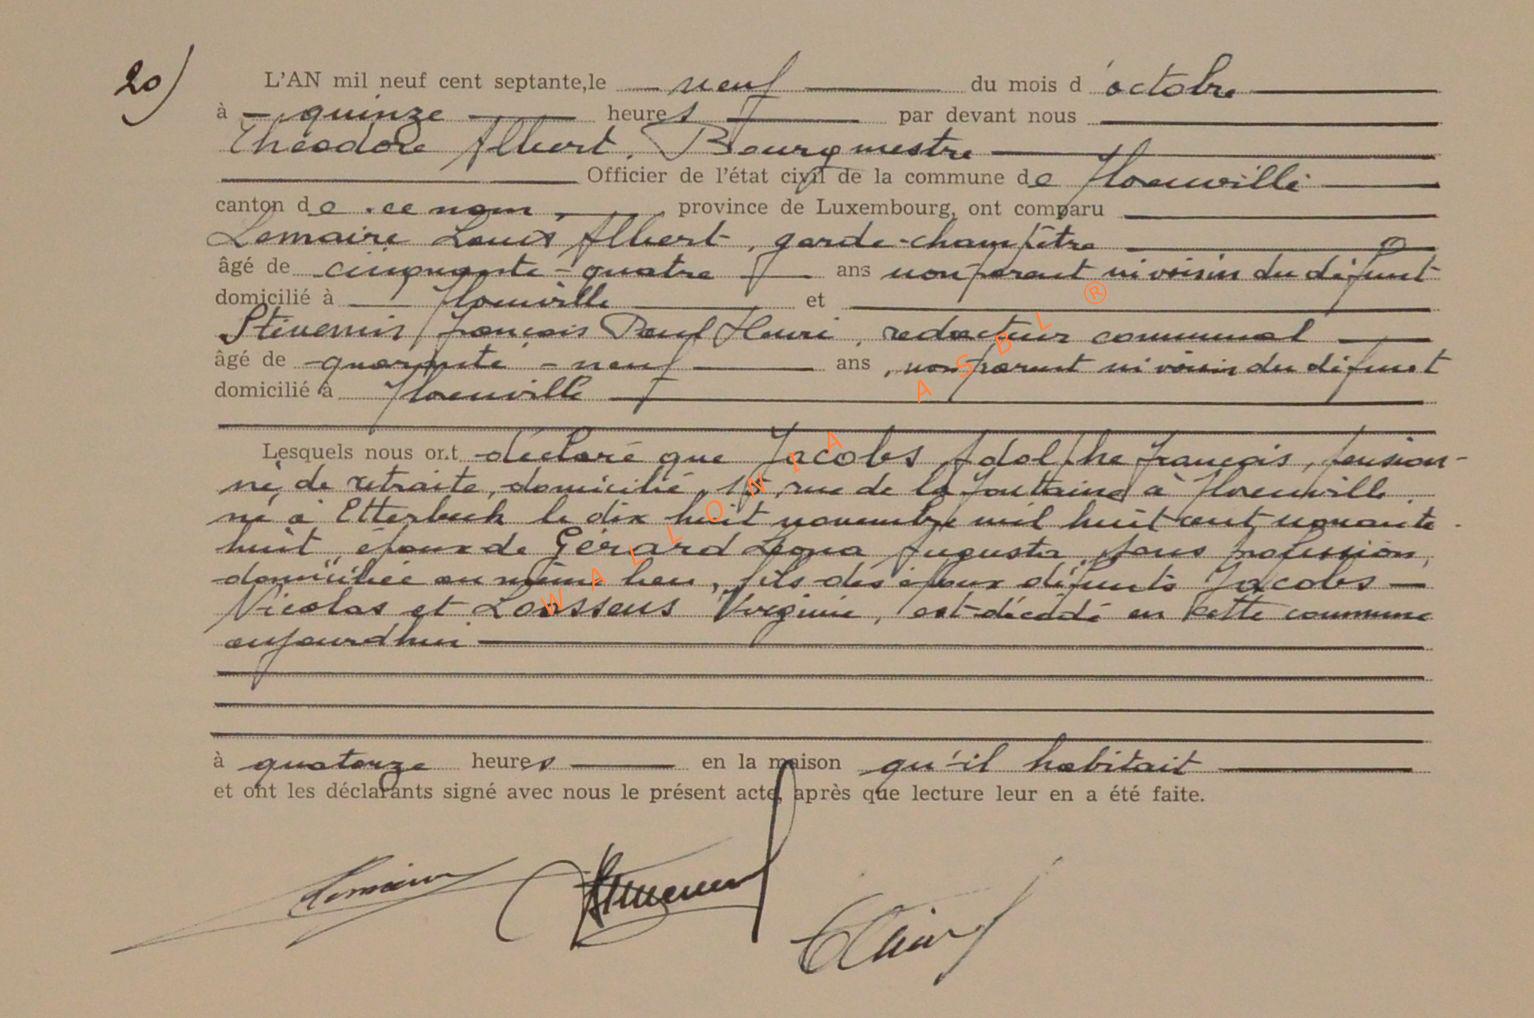 20) L'AN mil neuf cent septante, le neuf du mois d'octobre
à quinze heures par devant nous
Théodore Albert, Bourgmestre
Officier de l'état civil de la commune de Florenville
canton de ce nom, province de Luxembourg, ont comparu
Lemaire Louis Albert, garde-champêtre
âgé de cinquante-quatre ans non parent ni voisin du défunt
domicilié à Florenville et
Stévenin François Paul Henri, redacteur communal
âgé de quarante-neuf ans, non parent ni voisin du défunt
domicilié à Florenville
Lesquels nous ont déclaré que Jacobs Adolphe François, pension-
né de retraite, domicilié, rue de la Fontaine à Florenville
né à Etterbeek le dix huit novembre mil huit cent nonante
huit, époux de Gérard Léona Augusta, sans profession,
domiciliée au même lieu, fils des époux défunts Jacobs
Nicolas et Virginie, est décédé en cette commune
aujourd'hui
à quatorze heures en la maison qu'il habitait
et ont les déclarants signé avec nous le présent acte, après que lecture leur en a été faite.
Lemaire
WALLONIA ASBL ®